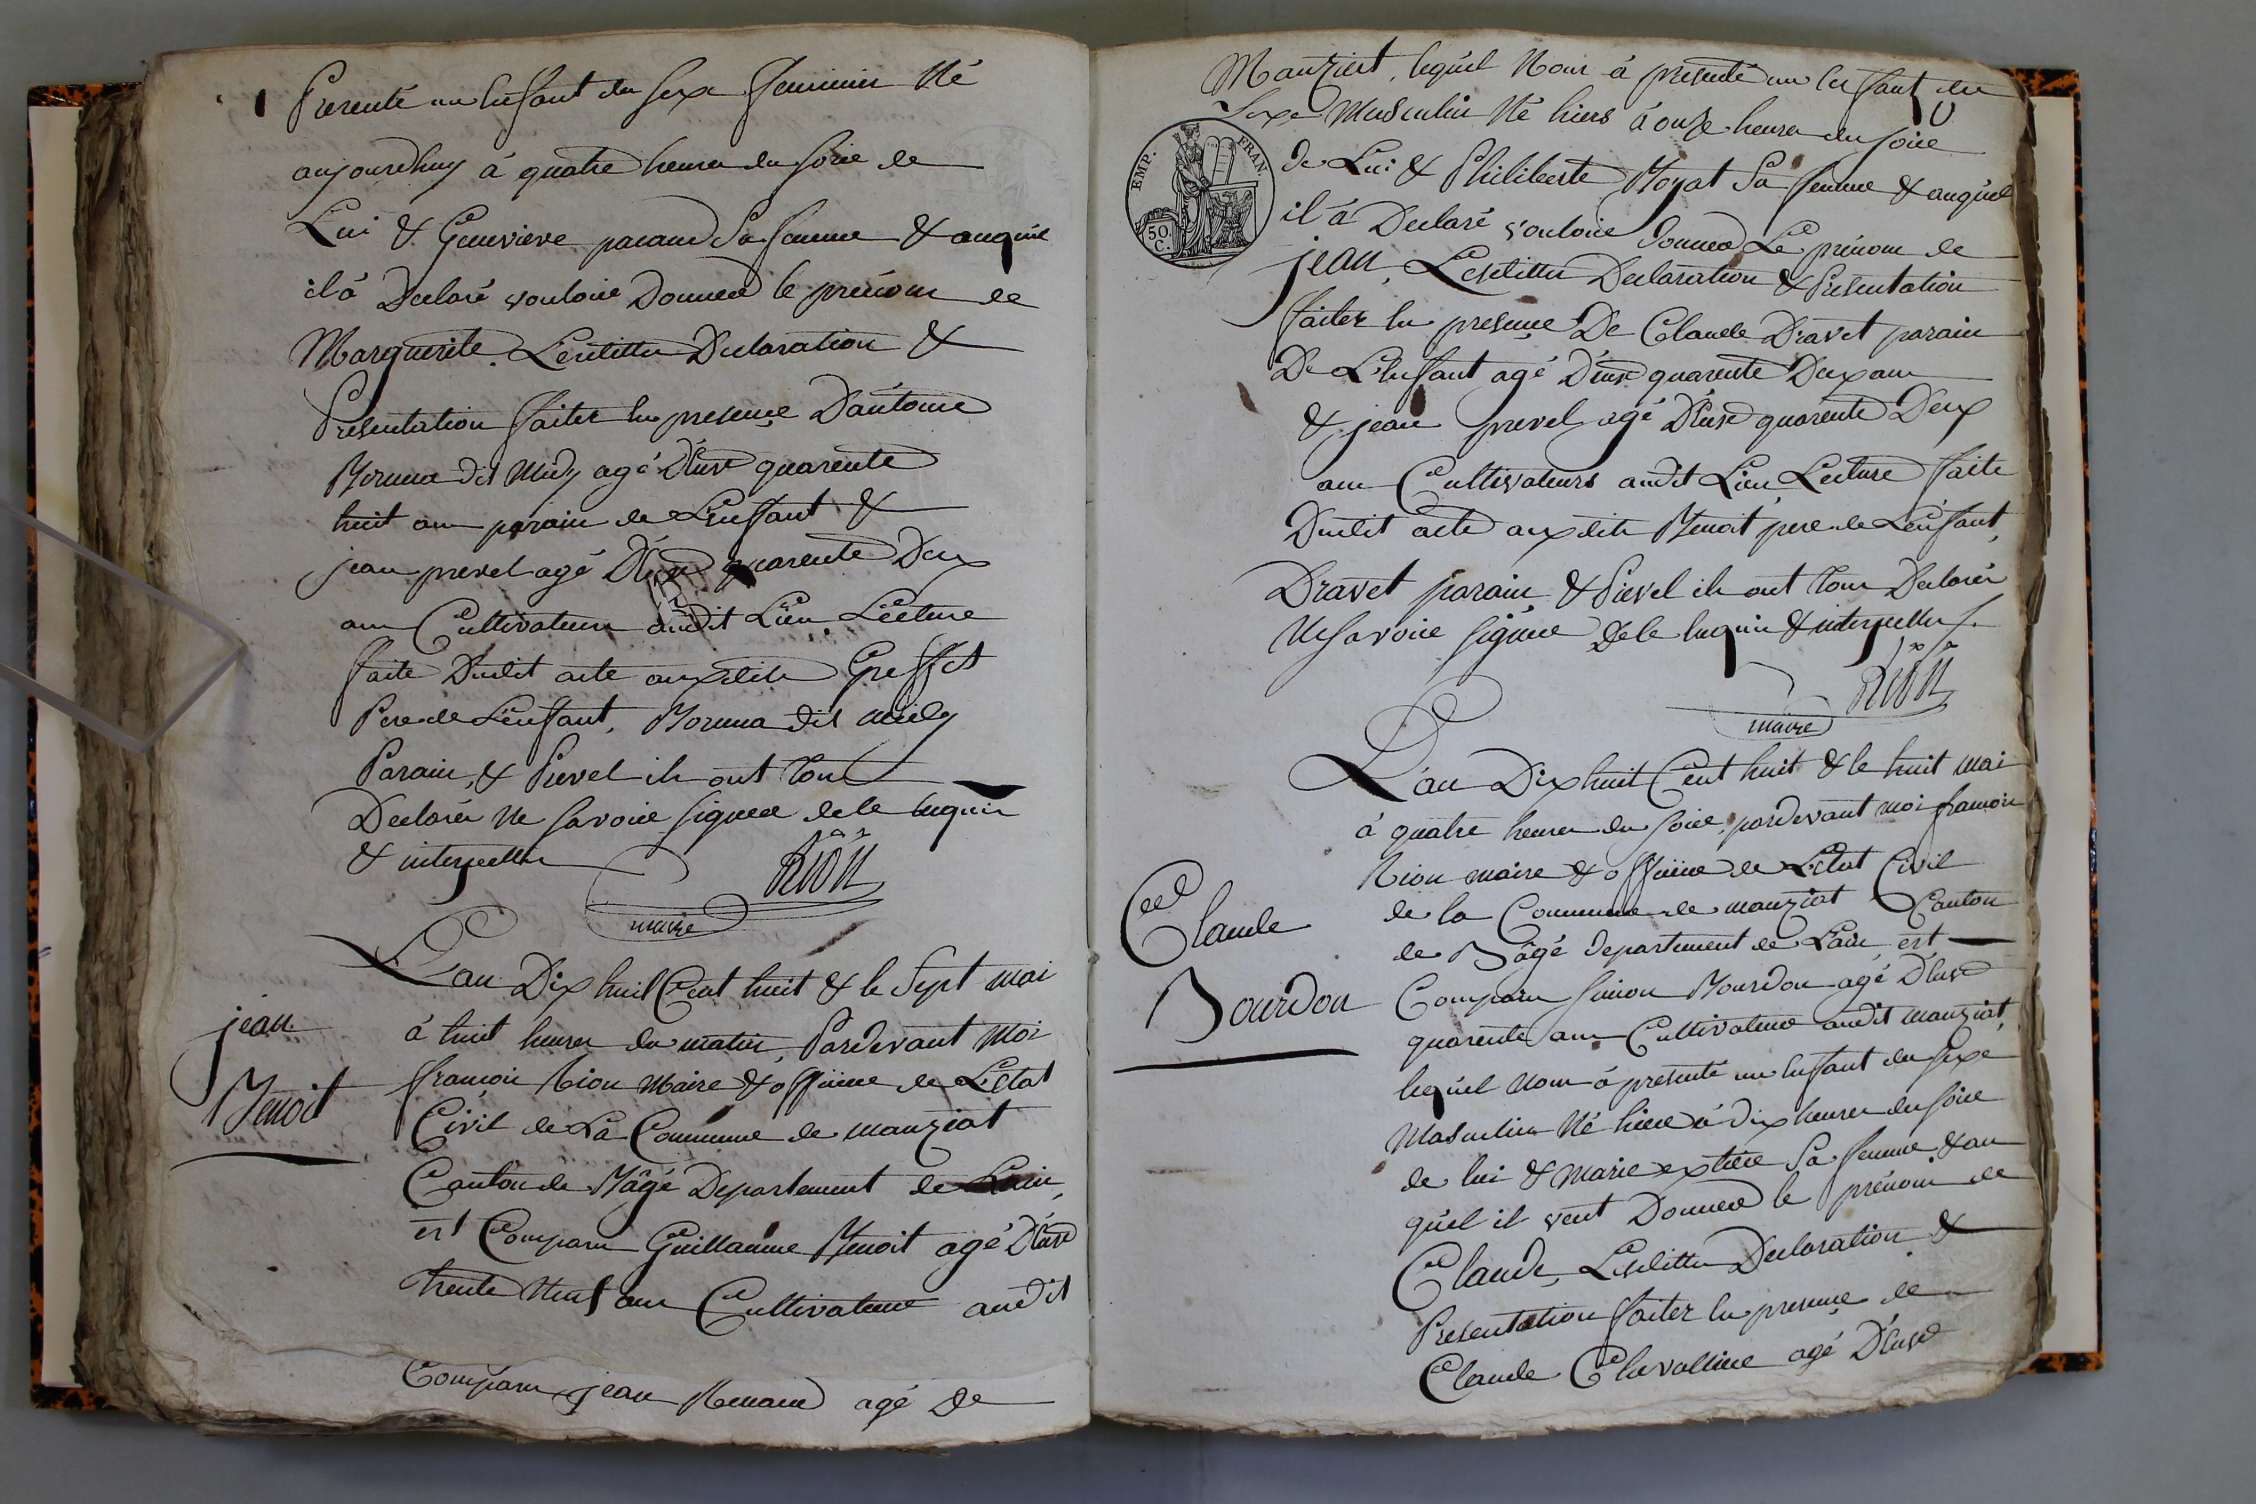 Presenté un Enfant du sexe ffeminin Né
aujourdhuy à quatre heures du soire de
Lui & Genevieve pacaud Sa femme & auquel
il à Declaré vouloire Donner le prénom de
Marguerite. Lesdittes Declaration &
Présentation ffaites En presençe D'antoine
dit Midy agé D'Environ quarente
huit ans parain de L'enffant &
jean prevel agé D'Environ quarente Deux
ans Cultivateurs audit Lieu, Lecture
ffaite Dudit acte auxdits Greffet
Pere de L'enffant, dit midy
Parain, & Prevel ils ont Tous
Declarés Ne savoire signer de le enquis
& interpellés
Rion
maire
jean
Benoit
L'an Dix huit Cent huit & le Sept mai
à huit heures du matin, Pardevant Moi
ffrançois Rion Maire & officier de L'Etat
Civil de La Commune de manziat
Canton de Bâgé Departement de Lain,
est Comparu Guillaume Benoit agé D'Environ
trente Neuf ans Cultivateur audit
Comparu jean Renaud agé De
Manziat, lequel Nous à presenté un Enffant du
Sexe Masculin Né hiers à onze heures du soire
EMP. FRAN.
50 C.
de Lui & Philiberte Boyat Sa femme & auquel
il à Declaré vouloire Donner Le prénom de
jean, Lesdittes Declaration & Présentation
ffaites En presençe De Claude Dravet parain
De L'Enffant agé D'Environ quarente Deux ans
& jean prevel agé D'Environ quarente Deux
ans Cultivateurs audit Lieu, Lecture ffaite
Dudit acte auxdits Benoit pere de L'enffant,
Dravet parain & Prevel ils ont Tous Declarés
Ne savoire signer de le enquis & interpellés.
Rion
maire
Claude
Bourdon
L'an Dix huit Cent huit & le huit mai
à quatre heures du soire, pardevant moi ffrançois
Rion maire & officier de L'Etat Civil
de la Commune de manziat Canton
de Bâgé Departement de Lain, est
Comparu Simon Bourdon agé D'Environ
quarente ans Cultivateur audit manziat,
lequel Nous à presenté un Enffant du sexe
Masculin Né hier à dix heures du soire
de lui & Marie Sa femme & au
quel il veut Donner le prénom de
Claude, Lesdittes Declaration &
Presentation ffaites En presençe de
Claude Chevallier agé D'Environ